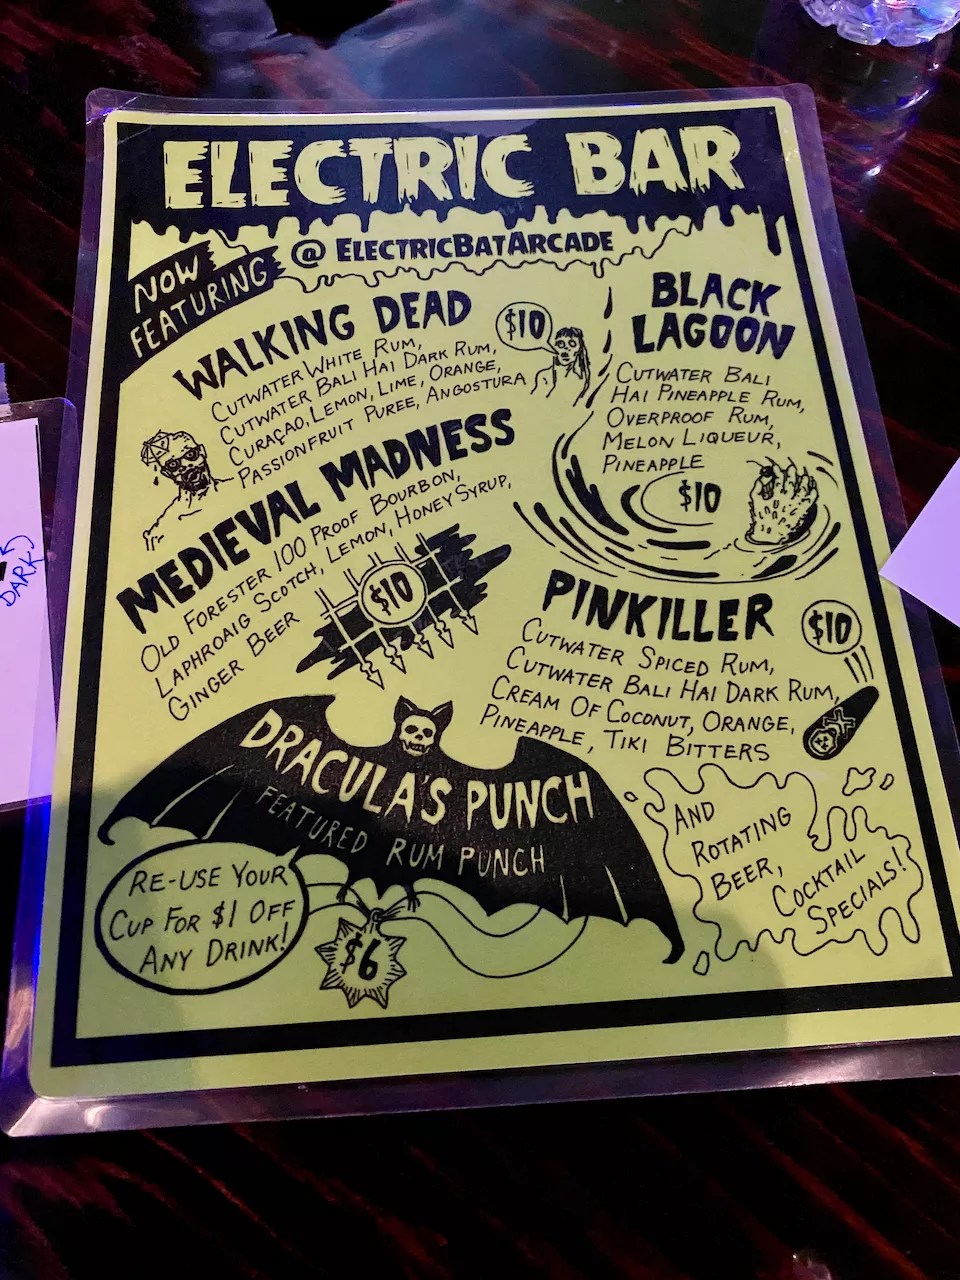 ELECTRIC BAR
@ ELECTRICBATARCADE
NOW
FEATURING
WALKING DEAD
$10
CUTWATER WHITE RUM,
CUTWATER BALI HAI DARK RUM,
CURAÇAO, LEMON, LIME, ORANGE,
PASSIONFRUIT PUREE, ANGOSTURA
BLACK
LAGOON
CUTWATER BALI
HAI PINEAPPLE RUM,
OVERPROOF RUM,
MELON LIQUEUR,
PINEAPPLE
$10
MEDIEVAL MADNESS
OLD FORESTER 100 PROOF BOURBON,
LAPHROAIG SCOTCH, LEMON, HONEY SYRUP,
GINGER BEER
$10
PINKILLER
$10
CUTWATER SPICED RUM,
CUTWATER BALI HAI DARK RUM,
CREAM OF COCONUT, ORANGE,
PINEAPPLE, TIKI BITTERS
DRACULA'S PUNCH
FEATURED RUM PUNCH
RE-USE YOUR
CUP FOR $1 OFF
ANY DRINK!
$6
AND
ROTATING
BEER,
COCKTAIL
SPECIALS!
DARK